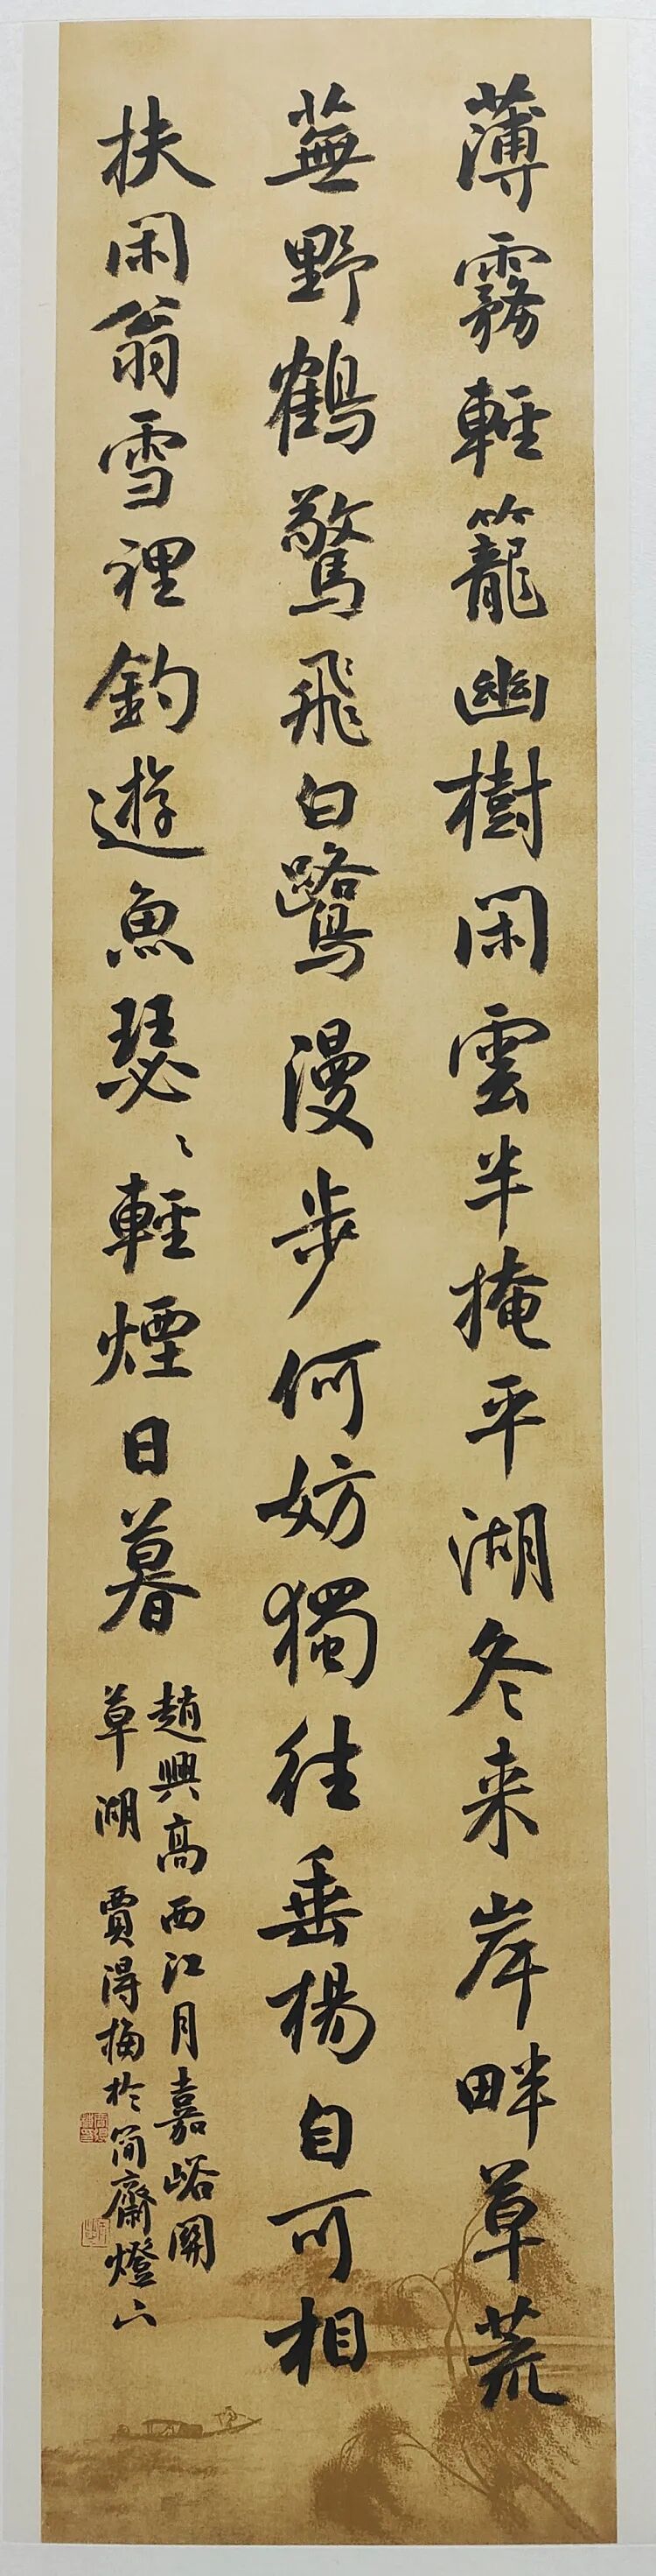 薄霧輕籠幽樹閑雲半掩平湖冬来岸畔草荒
蕪野鶴驚飛白鷺漫步何妨獨往垂楊自可相
扶閑翁雪裡釣遊魚瑟〻輕煙日暮
趙興高西江月嘉峪關
草湖 賈得梅於簡齋燈下